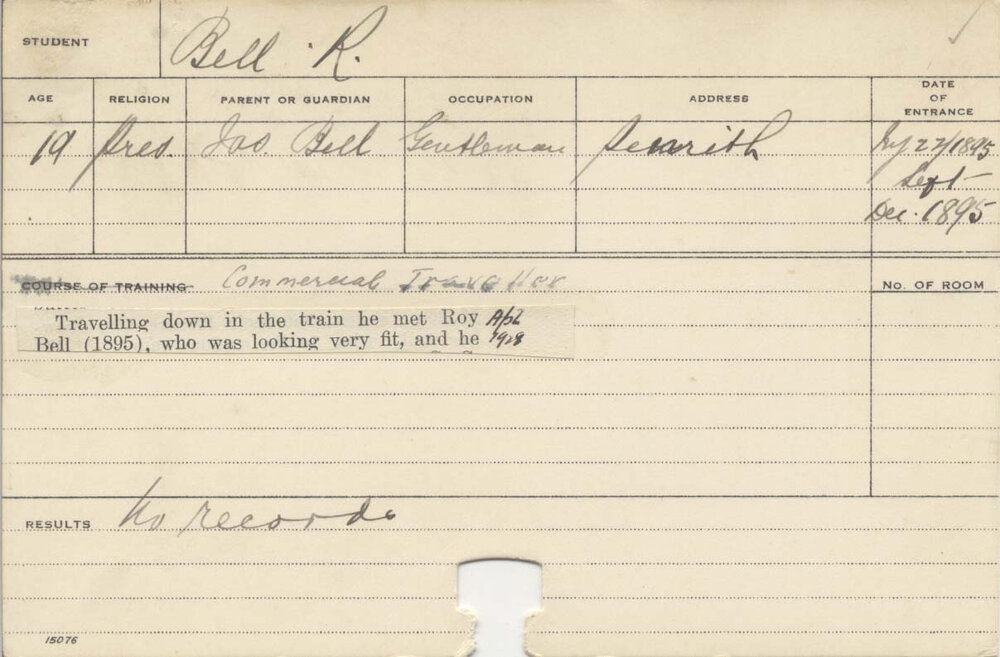 STUDENT Bell R.
AGE RELIGION PARENT OR GUARDIAN OCCUPATION ADDRESS DATE OF ENTRANCE
19 Pres. Jas. Bell Gentleman Penrith Jly 22/1895
Left
Dec. 1895
COURSE OF TRAINING Commercial Traveller No. OF ROOM
Travelling down in the train he met Roy
Bell (1895), who was looking very fit, and he 1928
RESULTS No records
15076